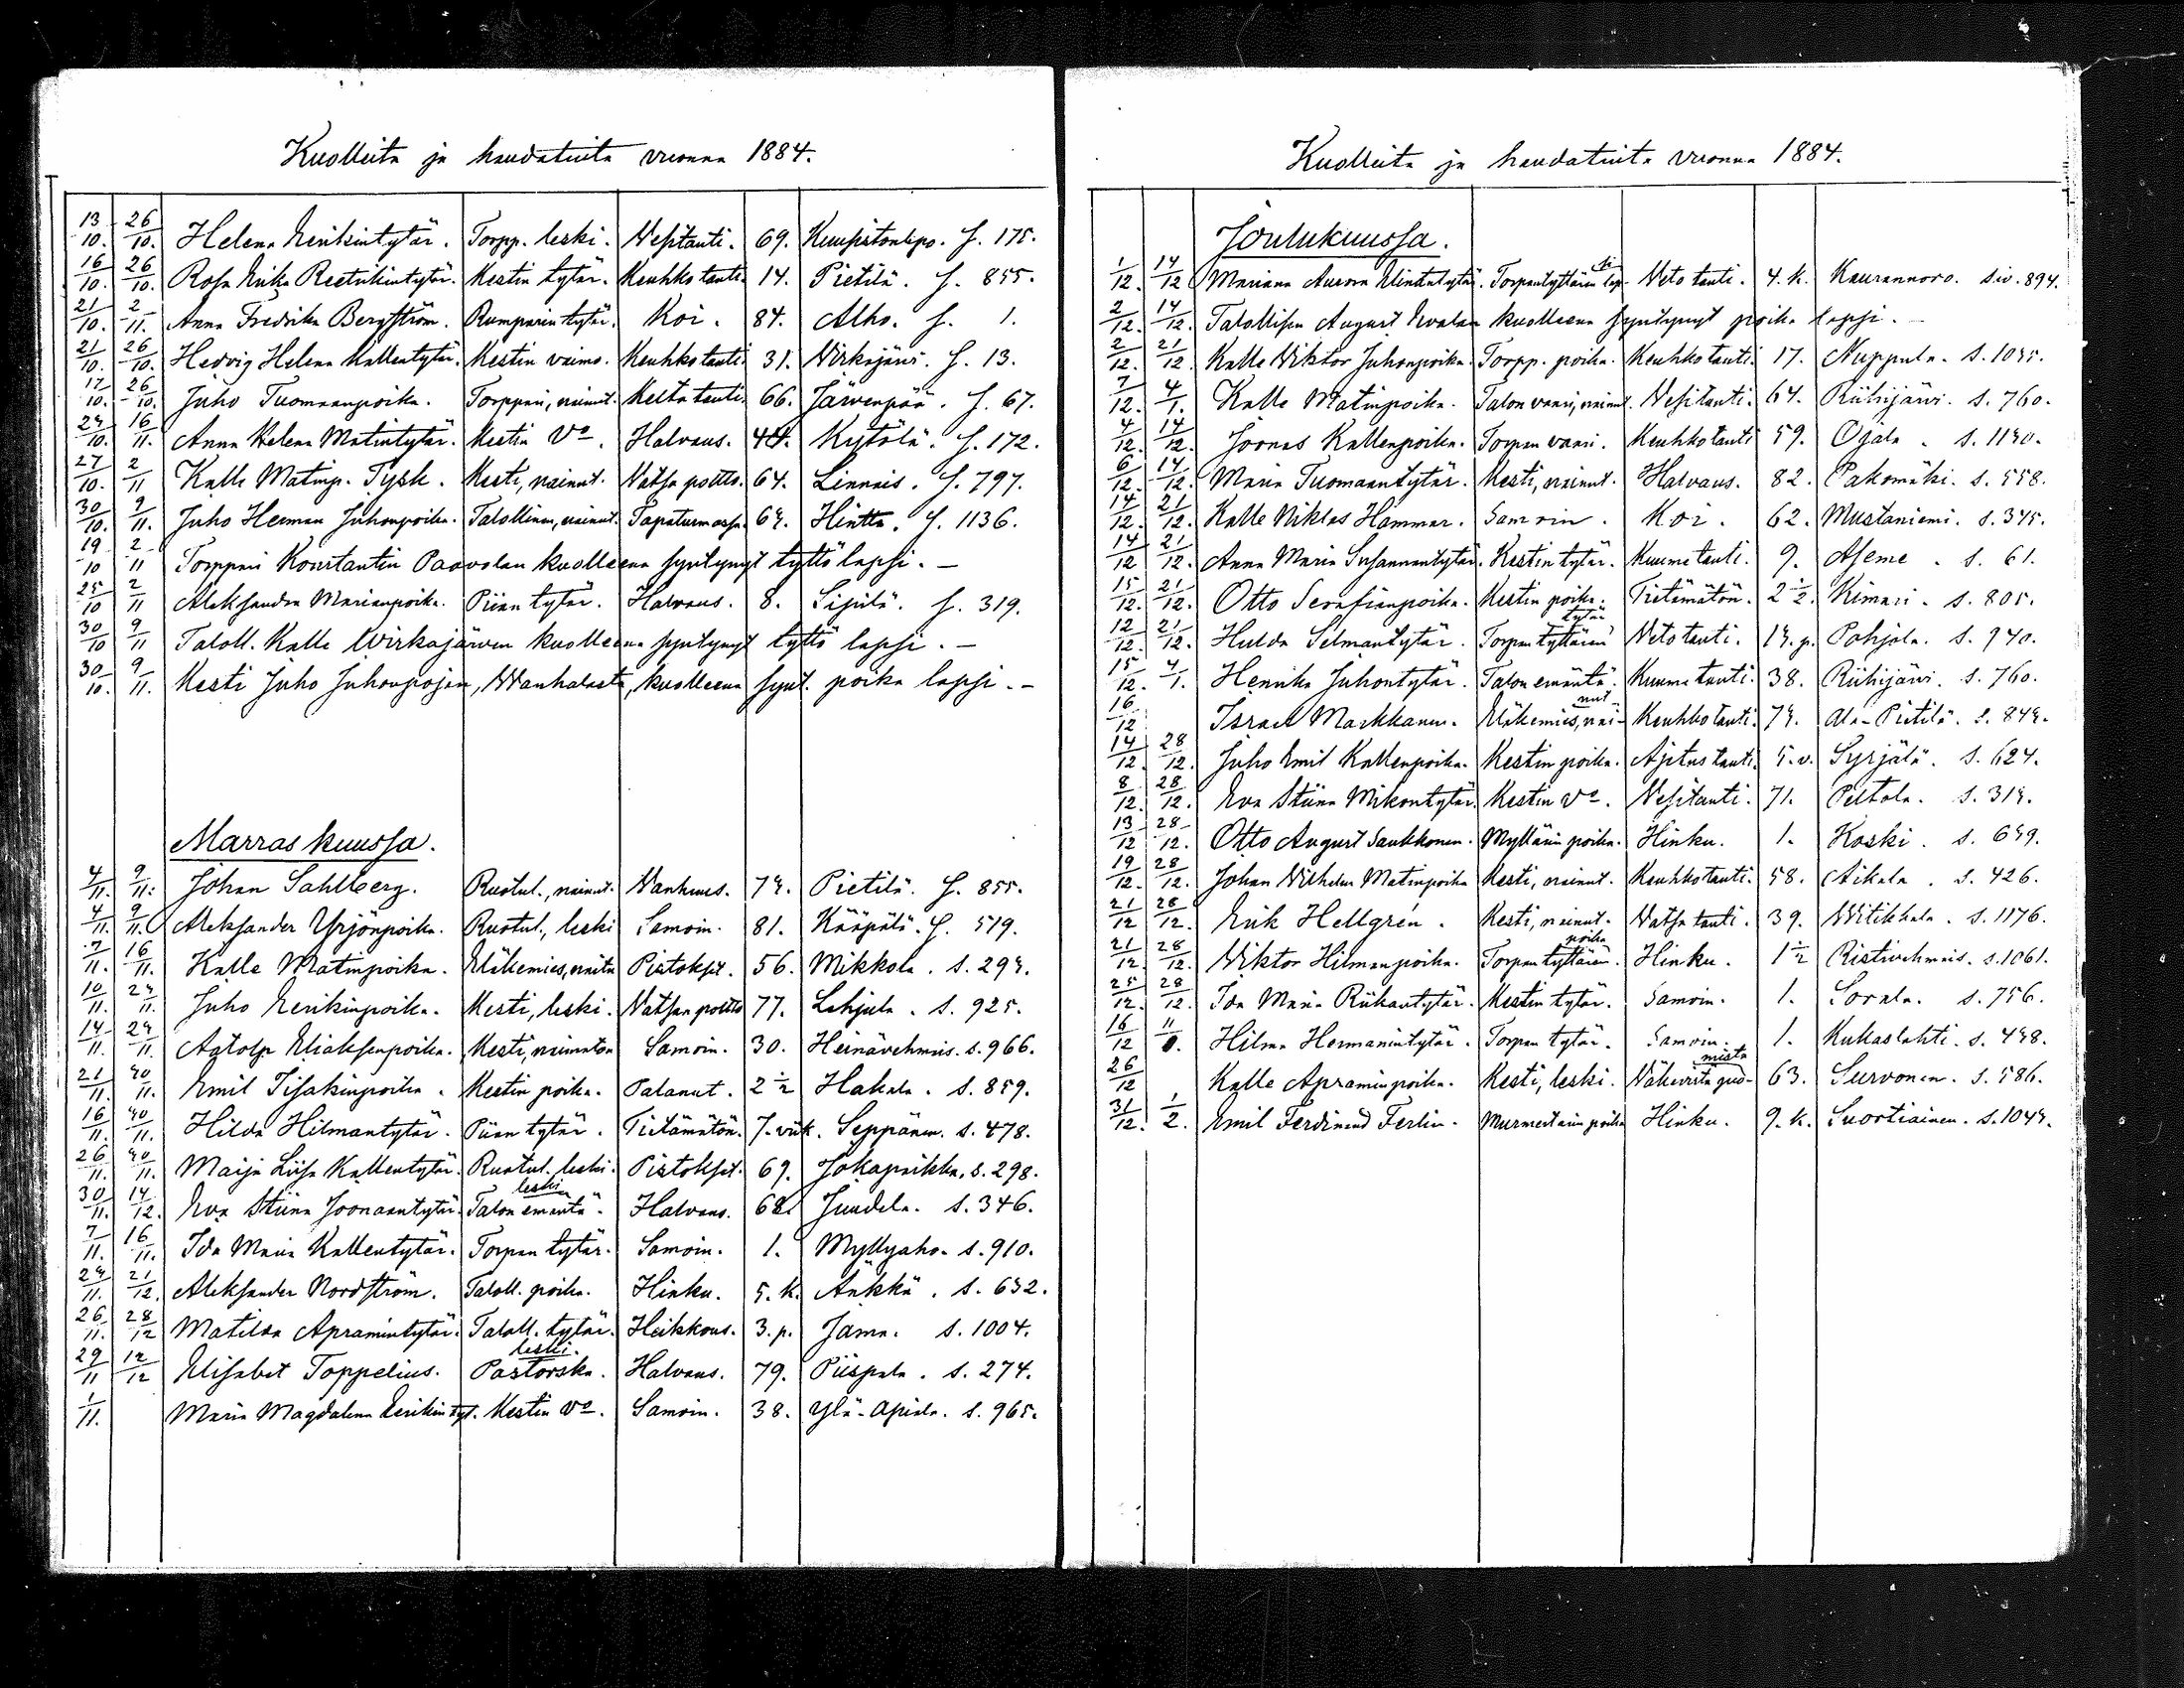 Kuolleita ja haudatuita vuonna 1884.
13/10. 26/10. Helena Henkintytär. Torpp. leski. Vesitauti. 69. s. 175.
16/10. 26/10. Rosa Erika Reetrikintytär. Kestin tytär. Keuhkotauti. 14. Pietilä. s. 855.
21/10. 2/11. Anna Fredrika Bergström. Rumparin tytär. Koi. 84. Alho. s. 1.
21/10. 26/10. Hedvig Helena Kallentytär. Kestin vaimo. Keuhkotauti. 31. Virkajärvi. s. 13.
17/10. 26/10. Juho Tuomaanpoika. Torppari, nainut. Kelta tauti. 66. Järvenpää. s. 67.
16/11. Anna Helena Matintytär. Kestin Vo. Halvaus. 44. Kytölä. s. 172.
27/10. 2/11 Kalle Matinp. Tysk. Kesti, nainut. Vatsa poltto. 64. Linnais. s. 797.
30/10. 9/11. Juho Herman Juhonpoika. Talollinen, nainut. Tapaturmassa. Hintta. s. 1136.
19/10 2/11 Torppari Konstantin Paavolan kuolleena syntynyt tyttö lapsi. –
25/10 2/11 Aleksandra Marianpoika. Piian tytär. Halvaus. 8. Sipilä. s. 319.
30/10 9/11 Taloll. Kalle Wirkajärven kuolleena syntynyt tyttö lapsi. –
30/10. 9/11. Kesti Juho Juhonpojan, Wanhalasta, kuolleena synt. poika lapsi. –
Marraskuussa.
4/11. 9/11. Johan Sahlberg. Ruotul., nainut. Vanhuus. Pietilä. s. 855.
4/11. 9/11. Aleksander Yrjönpoika. Ruotul., leski Samoin. 81. Kääpälä. s. 519.
7/11. 16/11. Kalle Matinpoika. Eläkemies, naitu Pistokset. 56. Mikkola.
10/11. Juho Eerikinpoika. Kesti, leski. Vatsan poltto 77. Lahjula. s. 925.
14/11. Aatolp Eliaksenpoika. Kesti, naimaton Samoin. 30. Heinävehmis. s. 966.
21/11. Emil Iisakinpoika. Kestin poika. Palanut. 2 1/2 Hakala. s. 859.
16/11. Hilda Hilmantytär. Piian tytär. Tietämätön. 7. viik. Seppänen. s. 478.
26/11. Maija Liisa Kallentytär. Ruotul. leski. Pistokset. 69. Jokapaikka. s. 298.
30/11. 14/12. Eva Stiina Joonaantytär. Talon emäntä leski. Halvaus. 68. Juudela. s. 346.
7/11. 16/11. Ida Maria Kallentytär. Torpan tytär. Samoin. 1. Myllyaho. s. 910.
21/12. Aleksander Nordström. Taloll. poika. Hinku. 5. k. Änkkä. s. 632.
26/11. 28/12 Matilda Apramintytär. Taloll. tytär. Heikkous. 3. p. Jama. s. 1004.
29/11 12/12 Elisabet Toppelius. Pastorska leski. Halvaus. 79. Piispala. s. 274.
1/11. Maria Magdalena Eerikintyt. Kestin Vo. Samoin. 38. Ylä-Apiala. s. 965.
Kuolleita ja haudatuita vuonna 1884.
Joulukuussa.
1/12. 14/12 Mariana Aurora Torpantyttären lapsi Veto tauti. 4. k. Kaurannoro. siv. 894.
2/12. 14/12. Talollisen August kuolleena syntynyt poika lapsi. –
2/12. 21/12. Kalle Viktor Juhonpoika. Torpp. poika. Keuhkotauti. 17. Nuppula. s. 1035.
7/12. 4/1. Kalle Matinpoika. Talon vaari, nainut. Vesitauti. 64. Riihijärvi. s. 760.
4/12. 14/12. Joonas Kallenpoika. Torpan vaari. Keuhkotauti 59. Ojala.
6/12. 14/12. Maria Tuomaantytär. Kesti, nainut. Halvaus. 82. Pakomäki. s. 558.
14/12. 21/12. Kalle Niklas Hammar. Samoin. Koi. 62. Mustaniemi. s. 345.
14/12 21/12. Anna Maria Susannantytär. Kestin tytär. Kuumetauti. 9. Aseme. s. 61.
15/12. 21/12. Otto Serafianpoika. Kestin poika. Tietämätön. 2 1/2. Kimari. s. 805.
12/12. 21/12. Hulda Selmantytär. Torpan tyttären tytär Veto tauti. Pohjola. s. 940.
15/12. 4/1. Henrika Juhontytär. Talon emäntä. Kuumetauti. 38. Riihijärvi. s. 760.
16/12 Israel Markkanen. Eläkemies, nainut Keuhkotauti. Ala-Pietilä.
14/12. 28/12. Juho Emil Kallenpoika. Kestin poika. Ajetustauti. 5. v. Syrjälä. s. 624.
8/12. 28/12. Eva Stiina Mikontytär. Kestin Vo. Vesitauti. 71. Peltola.
13/12 28/12. Otto August Saukkonen. Myllärin poika. Hinku. 1. Koski.
19/12. 28/12. Johan Vilhelm Matinpoika Kesti, nainut. Keuhkotauti. 58. Aikala. s. 426.
21/12 28/12. Erik Hellgrén. Kesti, nainut. Vatsa tauti. 39. Witikkala. s. 1176.
21/12 28/12. Viktor Hilmanpoika. Torpan tyttären poika Hinku. 1 1/2 Ristivehmais. s. 1061.
25/12. 28/12. Ida Maria Riikantytär. Kestin tytär. Samoin. 1. Sorala. s. 756.
16/12 Hilma Hermanintytär. Torpan tytär. Samoin. 1. Kukaslahti.
26/12 Kalle Apraminpoika. Kesti, leski. Näkevistä puomista 63. Survonen. s. 586.
31/12. 1/2. Emil Ferdinand Ferlin. Murmestarin poika Hinku. 9. k. Suortiainen.